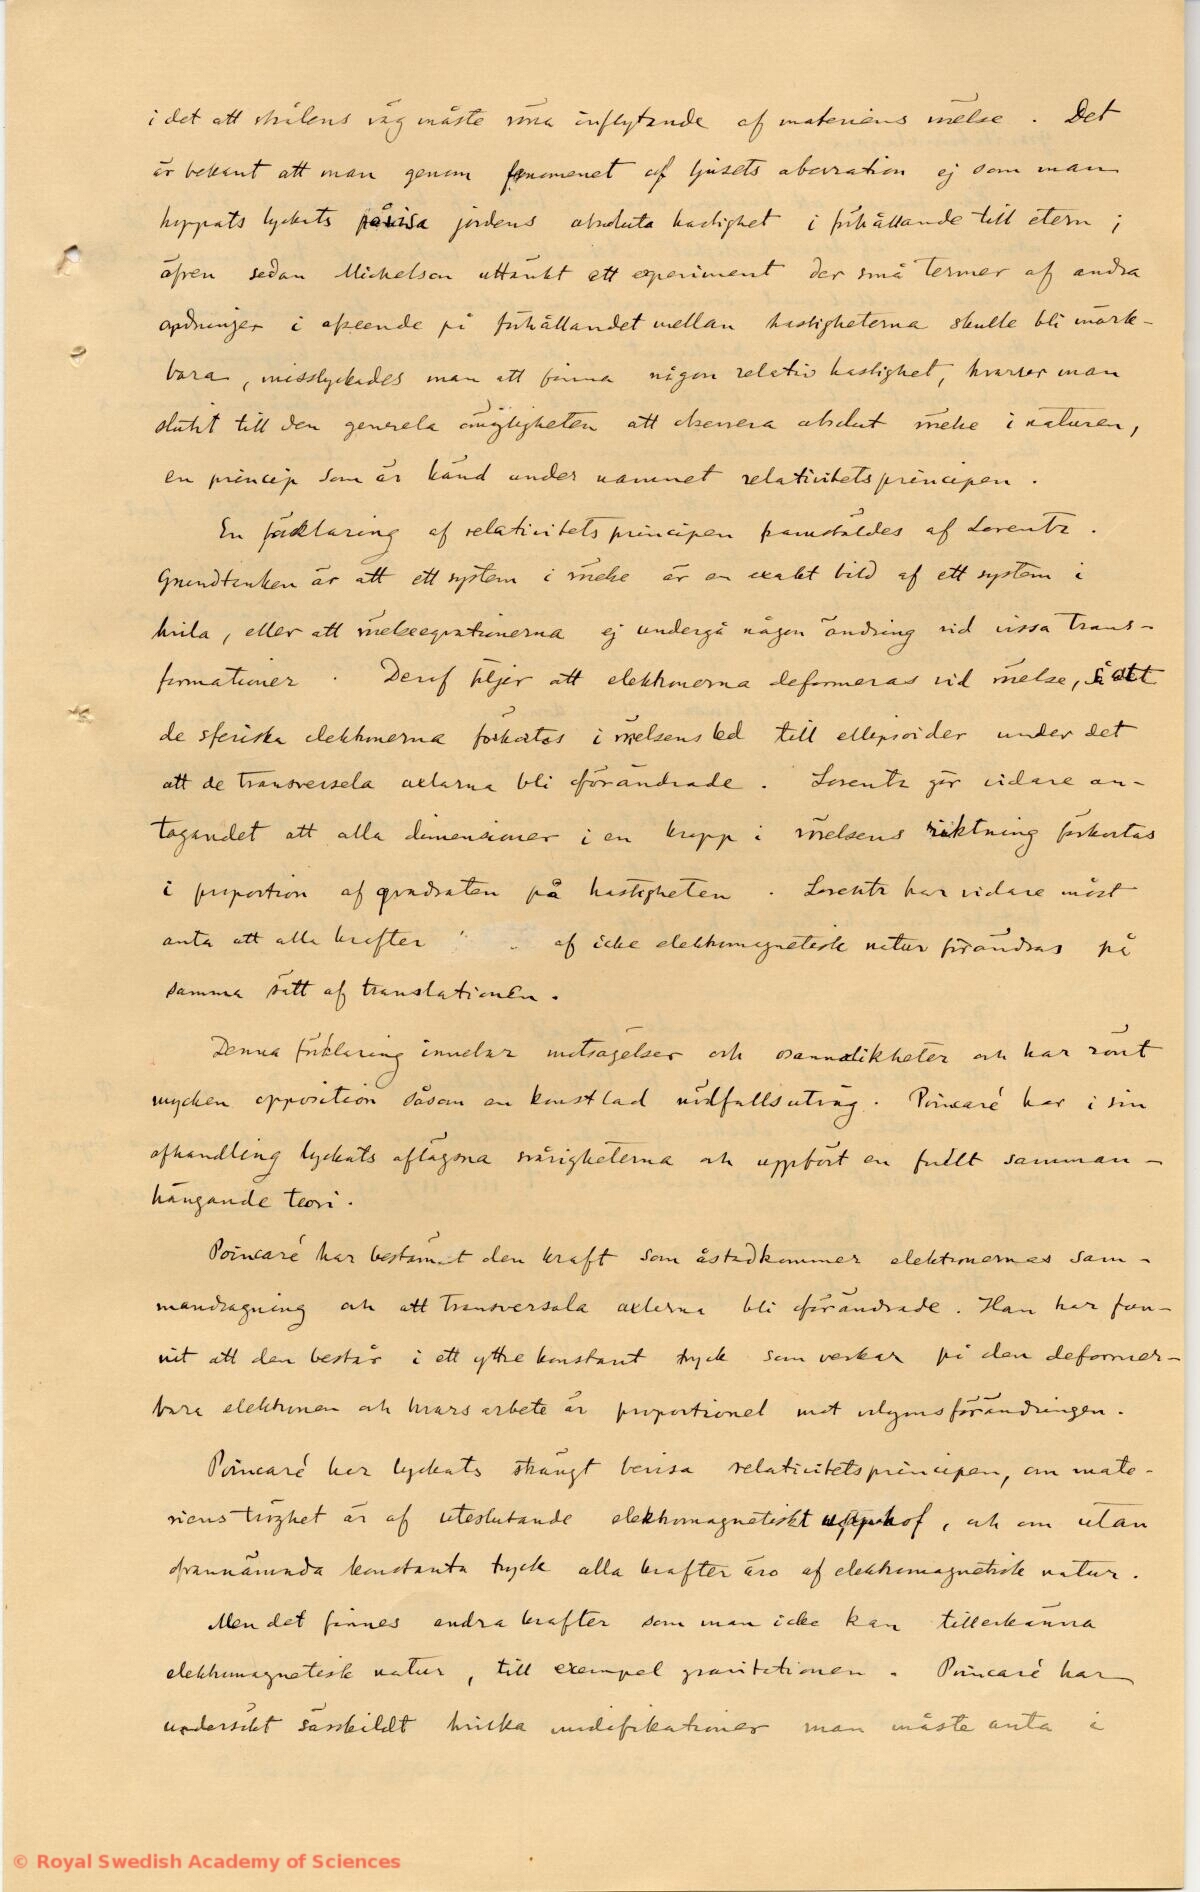 i det att strålens väg måste röna inflytande af materiens rörelse. Det
är bekant att man genom fenomenet af ljusets aberration ej som man
hoppats lyckats påvisa jordens absoluta hastighet i förhållande till etern;
äfven sedan Michelson uttänkt ett experiment der små termer af andra
ordningen i afseende på förhållandet mellan hastigheterna skulle bli märk-
bara, misslyckades man att finna någon relativ hastighet, hvarför man
slutit till den generela omöjligheten att observera absolut rörelse i naturen,
en princip som är känd under namnet relativitetsprincipen.
En förklaring af relativitetsprincipen framstäldes af Lorentz.
Grundtanken är att ett system i rörelse är en exakt bild af ett system i
hvila, eller att rörelseeqvationerna ej undergå någon ändring vid vissa trans-
formationer. Deraf följer att elektronerna deformeras vid rörelse, så att
de sferiska elektronerna förkortas i rörelsens led till ellipsoider under det
att de transversela axlarna bli oförändrade. Lorentz gör vidare an-
tagandet att alla dimensioner i en kropp i rörelsens riktning förkortas
i proportion af qvadraten på hastigheten. Lorentz har vidare måst
anta att alla krafter af icke elektromagnetisk natur förändras på
samma sätt af translationen.
Denna förklaring innebär motsägelser och osannolikheter och har rönt
mycken opposition såsom en konstlad nödfallsutväg. Poincaré har i sin
afhandling lyckats aflägsna svårigheterna och uppfört en fullt samman-
hängande teori.
Poincaré har bestämt den kraft som åstadkommer elektronernas sam-
mandragning och att transversala axlarna bli oförändrade. Han har fun-
nit att den består i ett yttre konstant tryck som verkar på den deformer-
bara elektronen och hvars arbete är proportionel mot volymsförändringen.
Poincaré har lyckats strängt bevisa relativitetsprincipen, om mate-
riens tröghet är af uteslutande elektromagnetiskt upphof, och om utan
ofvannämnda konstanta tryck alla krafter äro af elektromagnetisk natur.
Men det finnes andra krafter som man icke kan tillerkänna
elektromagnetisk natur, till exempel gravitationen. Poincaré har
undersökt särskildt hvilka modifikationer man måste anta i
© Royal Swedish Academy of Sciences